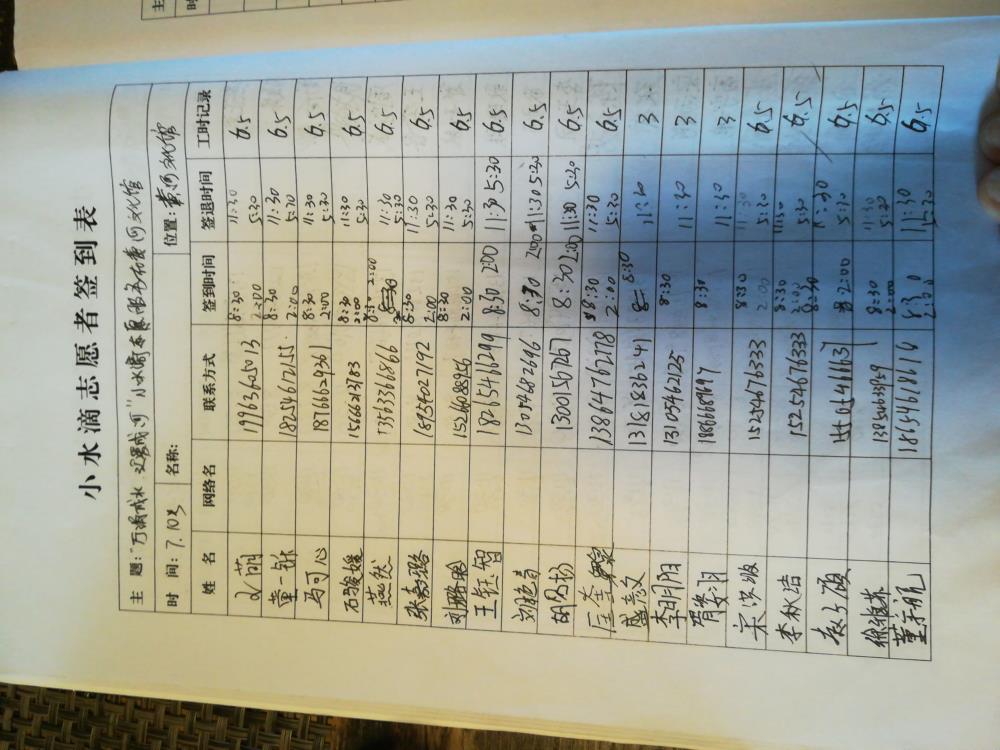 小水滴志愿者签到表
主 题：“万滴成水 汇聚成河”小水滴志愿服务在黄河文化馆
时 间：7.10号 名称： 位置：黄河文化馆
姓 名 网络名 联系方式 签到时间 签退时间 工时记录
19963605013 8:30 2:00 11:30 5:30 6.5
董一 18254612155 8:30 2:00 11:30 5:30 6.5
马可心 18766629361 8:30 2:00 11:30 5:30 6.5
石骏媛 15666213783 8:30 2:00 11:30 5:30 6.5
173563368166 8:30 2:00 11:30 5:30 6.5
张嘉璐 18954027192 8:30 2:00 11:30 5:30 6.5
刘 15266088956 8:30 2:00 11:30 5:30 6.5
王钰智 18265411299 8:30 2:00 11:30 5:30 6.5
刘 13054682696 8:30 2:00 11:30 5:30 6.5
胡 13001567267 8:30 2:00 11:30 5:30 6.5
13864767278 8:30 2:00 11:30 5:30 6.5
盛志文 13181836241 8:30 11:30 3
李明阳 13105462125 8:30 11:30 3
18866689697 8:30 11:30 3
宋 15254676333 8:30 2:00 11:30 5:30 6.5
李秋洁 15254676333 8:30 2:00 11:30 5:30 6.5
2:00 5:30 6.5
徐 8:30 2:00 11:30 5:30 6.5
董宇航 18654618614 11:30 6.5